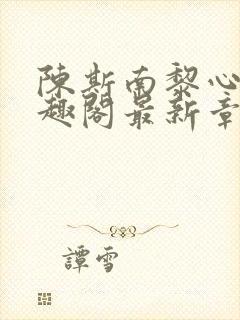 陳斯南黎心
趣閣最新章
譚雪